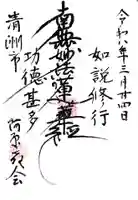 令和八年三月廿四日
如説修行
南無妙法蓮華経
功徳甚多
清洲市